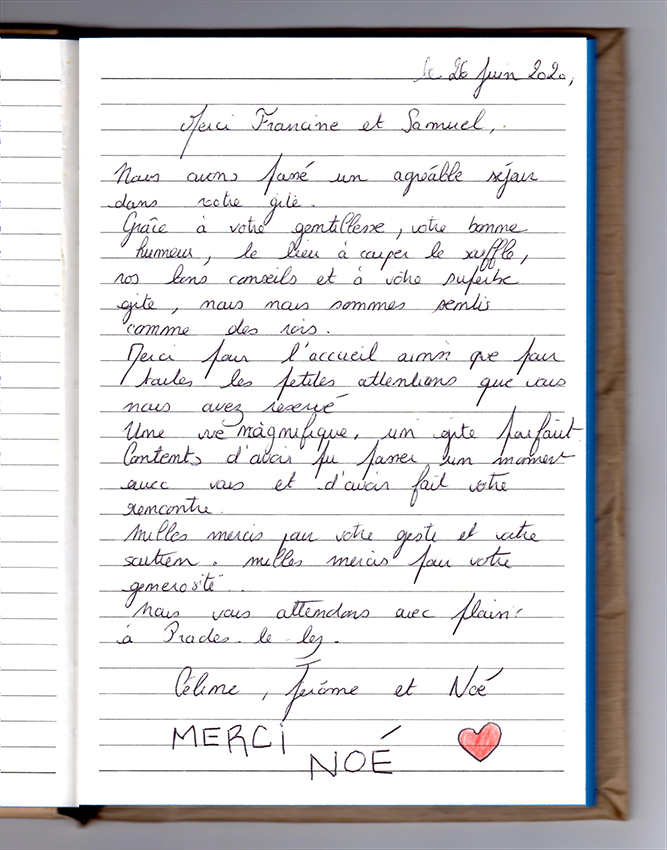 le 26 Juin 2020,
Merci Francine et Samuel,
Nous avons passé un agréable séjour
dans votre gîte.
Grâce à votre gentillesse, votre bonne
humeur, le lieu à couper le souffle,
vos bons conseils et à vôtre superbe
gite, nous nous sommes sentis
comme des rois.
Merci pour l'accueil ainsi que pour
toutes les petites attentions que vous
nous avez reservé
Une vue magnifique, un gîte parfait
Contents d'avoir pu passer un moment
avec vous et d'avoir fait votre
rencontre.
Milles mercis pour votre geste et votre
soutien. Milles mercis pour votre
generosité..
Nous vous attendons avec plaisir
à Prades-le-lez.
Céline, Jérôme et Noé
MERCI
NOÉ